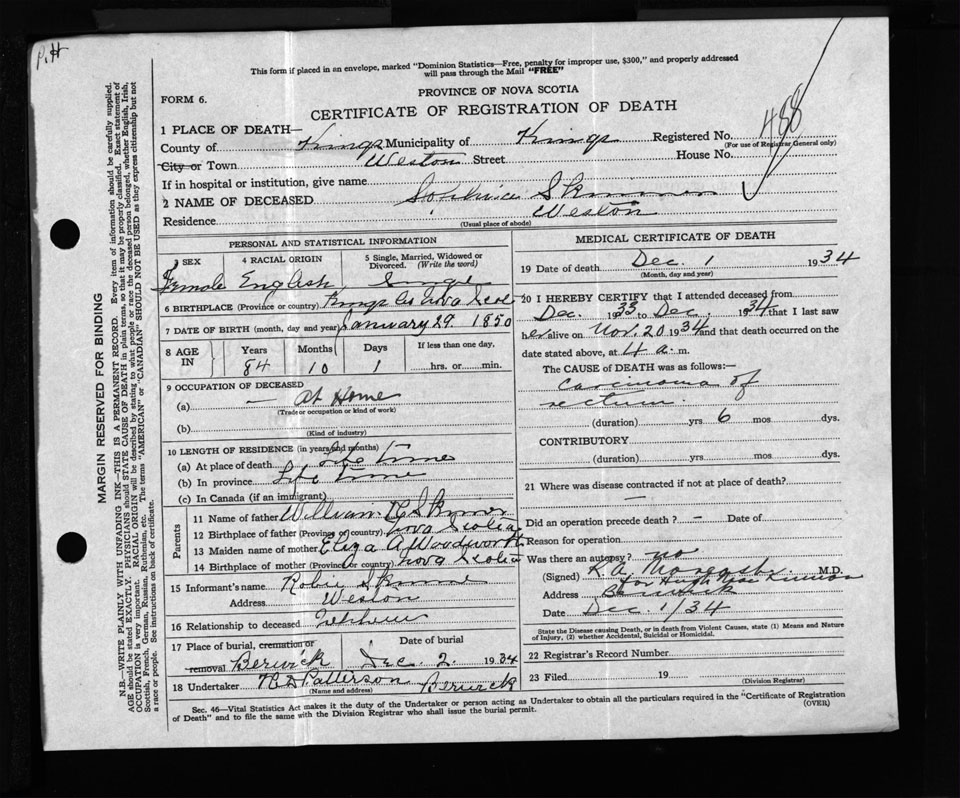 P.H
This form if placed in an envelope, marked "Dominion Statistics—Free, penalty for improper use, $300," and properly addressed
will pass through the Mail "FREE"
PROVINCE OF NOVA SCOTIA
FORM 6.
CERTIFICATE OF REGISTRATION OF DEATH
1 PLACE OF DEATH—
County of Kings Municipality of Kings Registered No. 488
(For use of Registrar General only)
City or Town Weston Street House No.
If in hospital or institution, give name
2 NAME OF DECEASED Skinner
Residence Weston
(Usual place of abode)
PERSONAL AND STATISTICAL INFORMATION
3 SEX 4 RACIAL ORIGIN 5 Single, Married, Widowed or
Divorced. (Write the word)
Female English Single
6 BIRTHPLACE (Province or country) Kings Co Nova Scotia
7 DATE OF BIRTH (month, day and year) January 29. 1850
8 AGE IN Years Months Days If less than one day,
84 10 1 hrs. or min.
9 OCCUPATION OF DECEASED
(a) — At Home
(Trade or occupation or kind of work)
(b)
(Kind of industry)
10 LENGTH OF RESIDENCE (in years and months)
(a) At place of death Life Time
(b) In province Life Time
(c) In Canada (if an immigrant)
Parents
11 Name of father William Skinner
12 Birthplace of father (Province or country) Nova Scotia
13 Maiden name of mother Eliza A Woodworth
14 Birthplace of mother (Province or country) Nova Scotia
15 Informant's name Robie Skinner
Address Weston
16 Relationship to deceased Nephew
17 Place of burial, cremation or Date of burial
removal Berwick Dec. 2. 1934
18 Undertaker Patterson Berwick
(Name and address)
MEDICAL CERTIFICATE OF DEATH
19 Date of death Dec. 1 1934
(Month, day and year)
20 I HEREBY CERTIFY that I attended deceased from
Dec. 1933 to Dec. 1934 that I last saw
her alive on Nov. 20 1934 and that death occurred on the
date stated above, at 4 a. m.
The CAUSE of DEATH was as follows:—
Carcinoma of
rectum.
(duration) yrs 6 mos dys.
CONTRIBUTORY
(duration) yrs mos dys.
21 Where was disease contracted if not at place of death?
—
Did an operation precede death ? – Date of
Reason for operation
Was there an autopsy ? no
(Signed) K.A. M.D.
for Hugh MacKinnon
Address Berwick
Date Dec. 1/34
State the Disease causing Death, or in death from Violent Causes, state (1) Means and Nature
of Injury, (2) whether Accidental, Suicidal or Homicidal.
22 Registrar's Record Number
23 Filed 19
(Division Registrar)
Sec. 46—Vital Statistics Act makes it the duty of the Undertaker or person acting as Undertaker to obtain all the particulars required in the "Certificate of Registration
of Death" and to file the same with the Division Registrar who shall issue the burial permit. (OVER)
MARGIN RESERVED FOR BINDING
N.B.—WRITE PLAINLY WITH UNFADING INK—THIS IS A PERMANENT RECORD. Every item of information should be carefully supplied.
AGE should be stated EXACTLY. PHYSICIANS should STATE CAUSE OF DEATH in plain terms, so that it may be properly classified. Exact statement of
OCCUPATION is very important. RACIAL ORIGIN will be described by stating to what people or race the deceased person belonged, whether English, Irish,
Scottish, French, German, Russian, Ruthenian, etc. The terms "AMERICAN" or "CANADIAN" SHOULD NOT BE USED as they express citizenship but not
a race or people. See instructions on back of certificate.